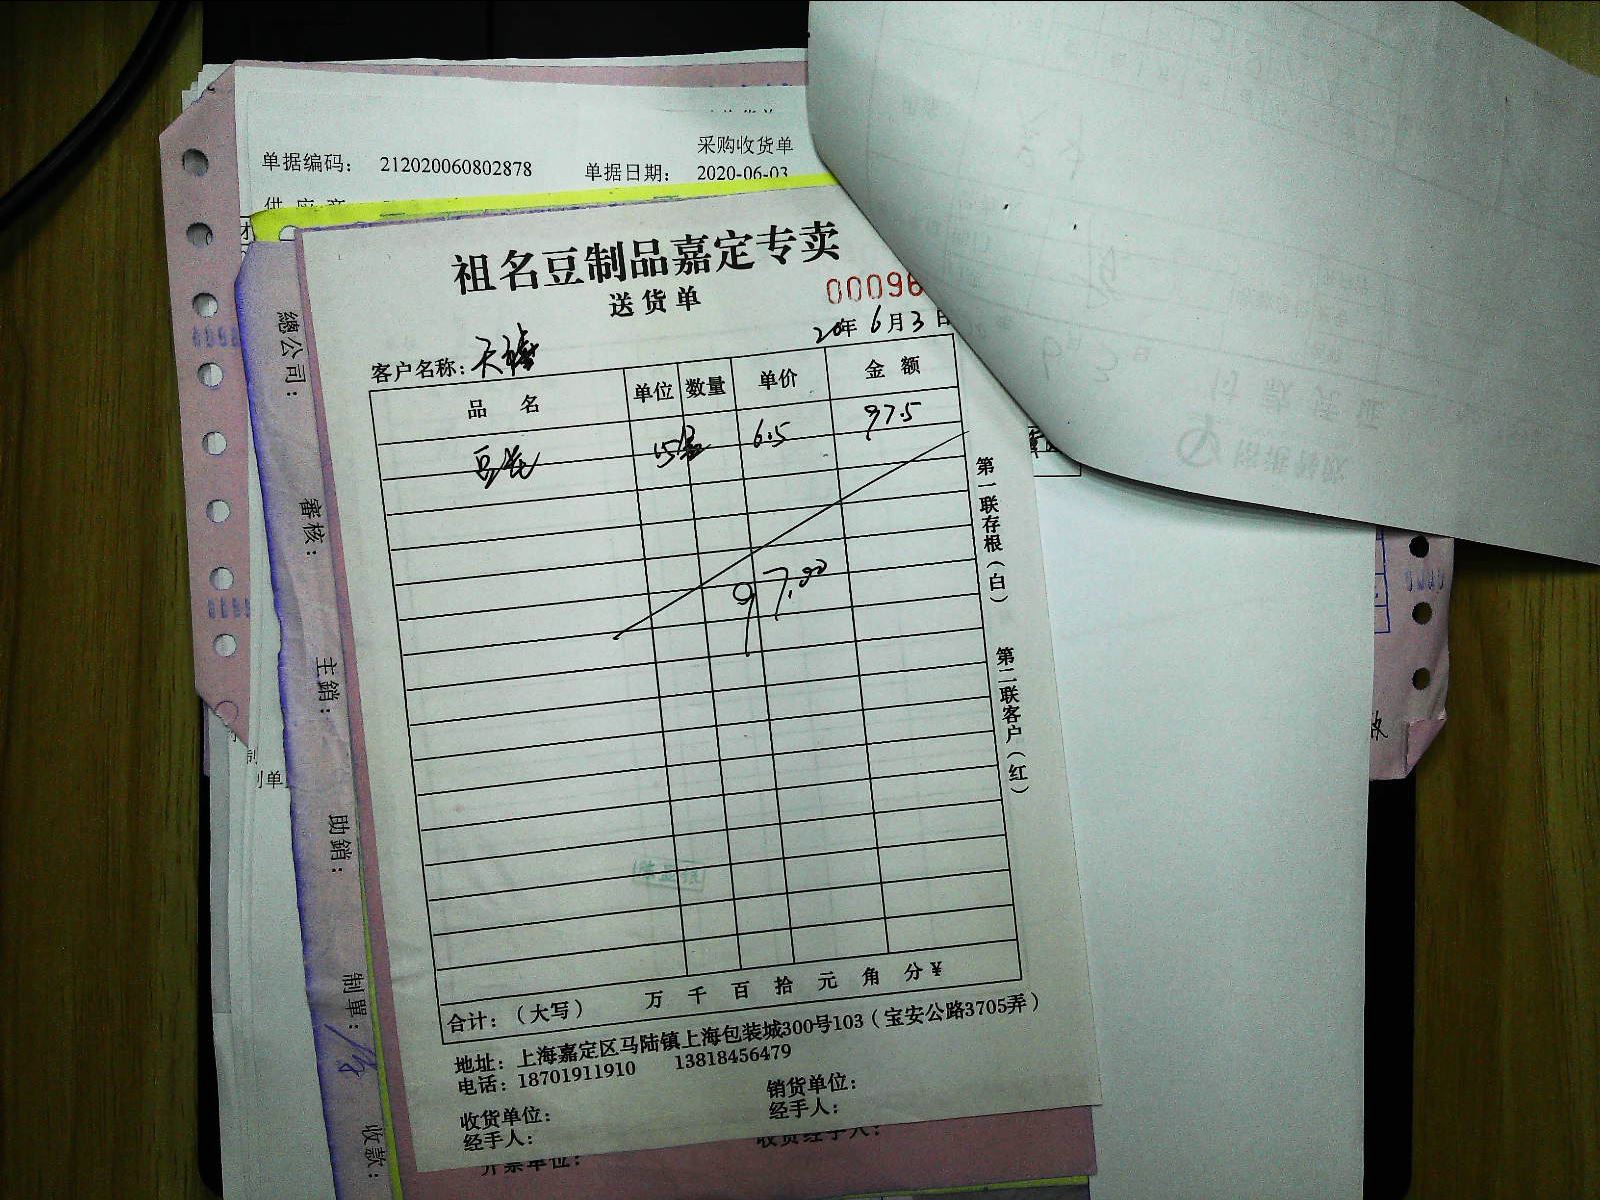 采购收货单
单据编码： 212020060802878 单据日期： 2020-06-03
供应商
祖名豆制品嘉定专卖
送货单
00096
20年6月3日
客户名称：天禧
品名 单位 数量 单价 金额
豆花 15盒 6.5 97.5
97.50
第一联存根（白）
第二联客户（红）
合计：（大写） 万 千 百 拾 元 角 分 ¥
地址：上海嘉定区马陆镇上海包装城300号103（宝安公路3705弄）
电话：18701911910 13818456479
收货单位： 销货单位：
经手人： 经手人：
开票单位： 收货经手人：
總公司：
審核：
主銷：
助銷：
制單：
收款：
制单